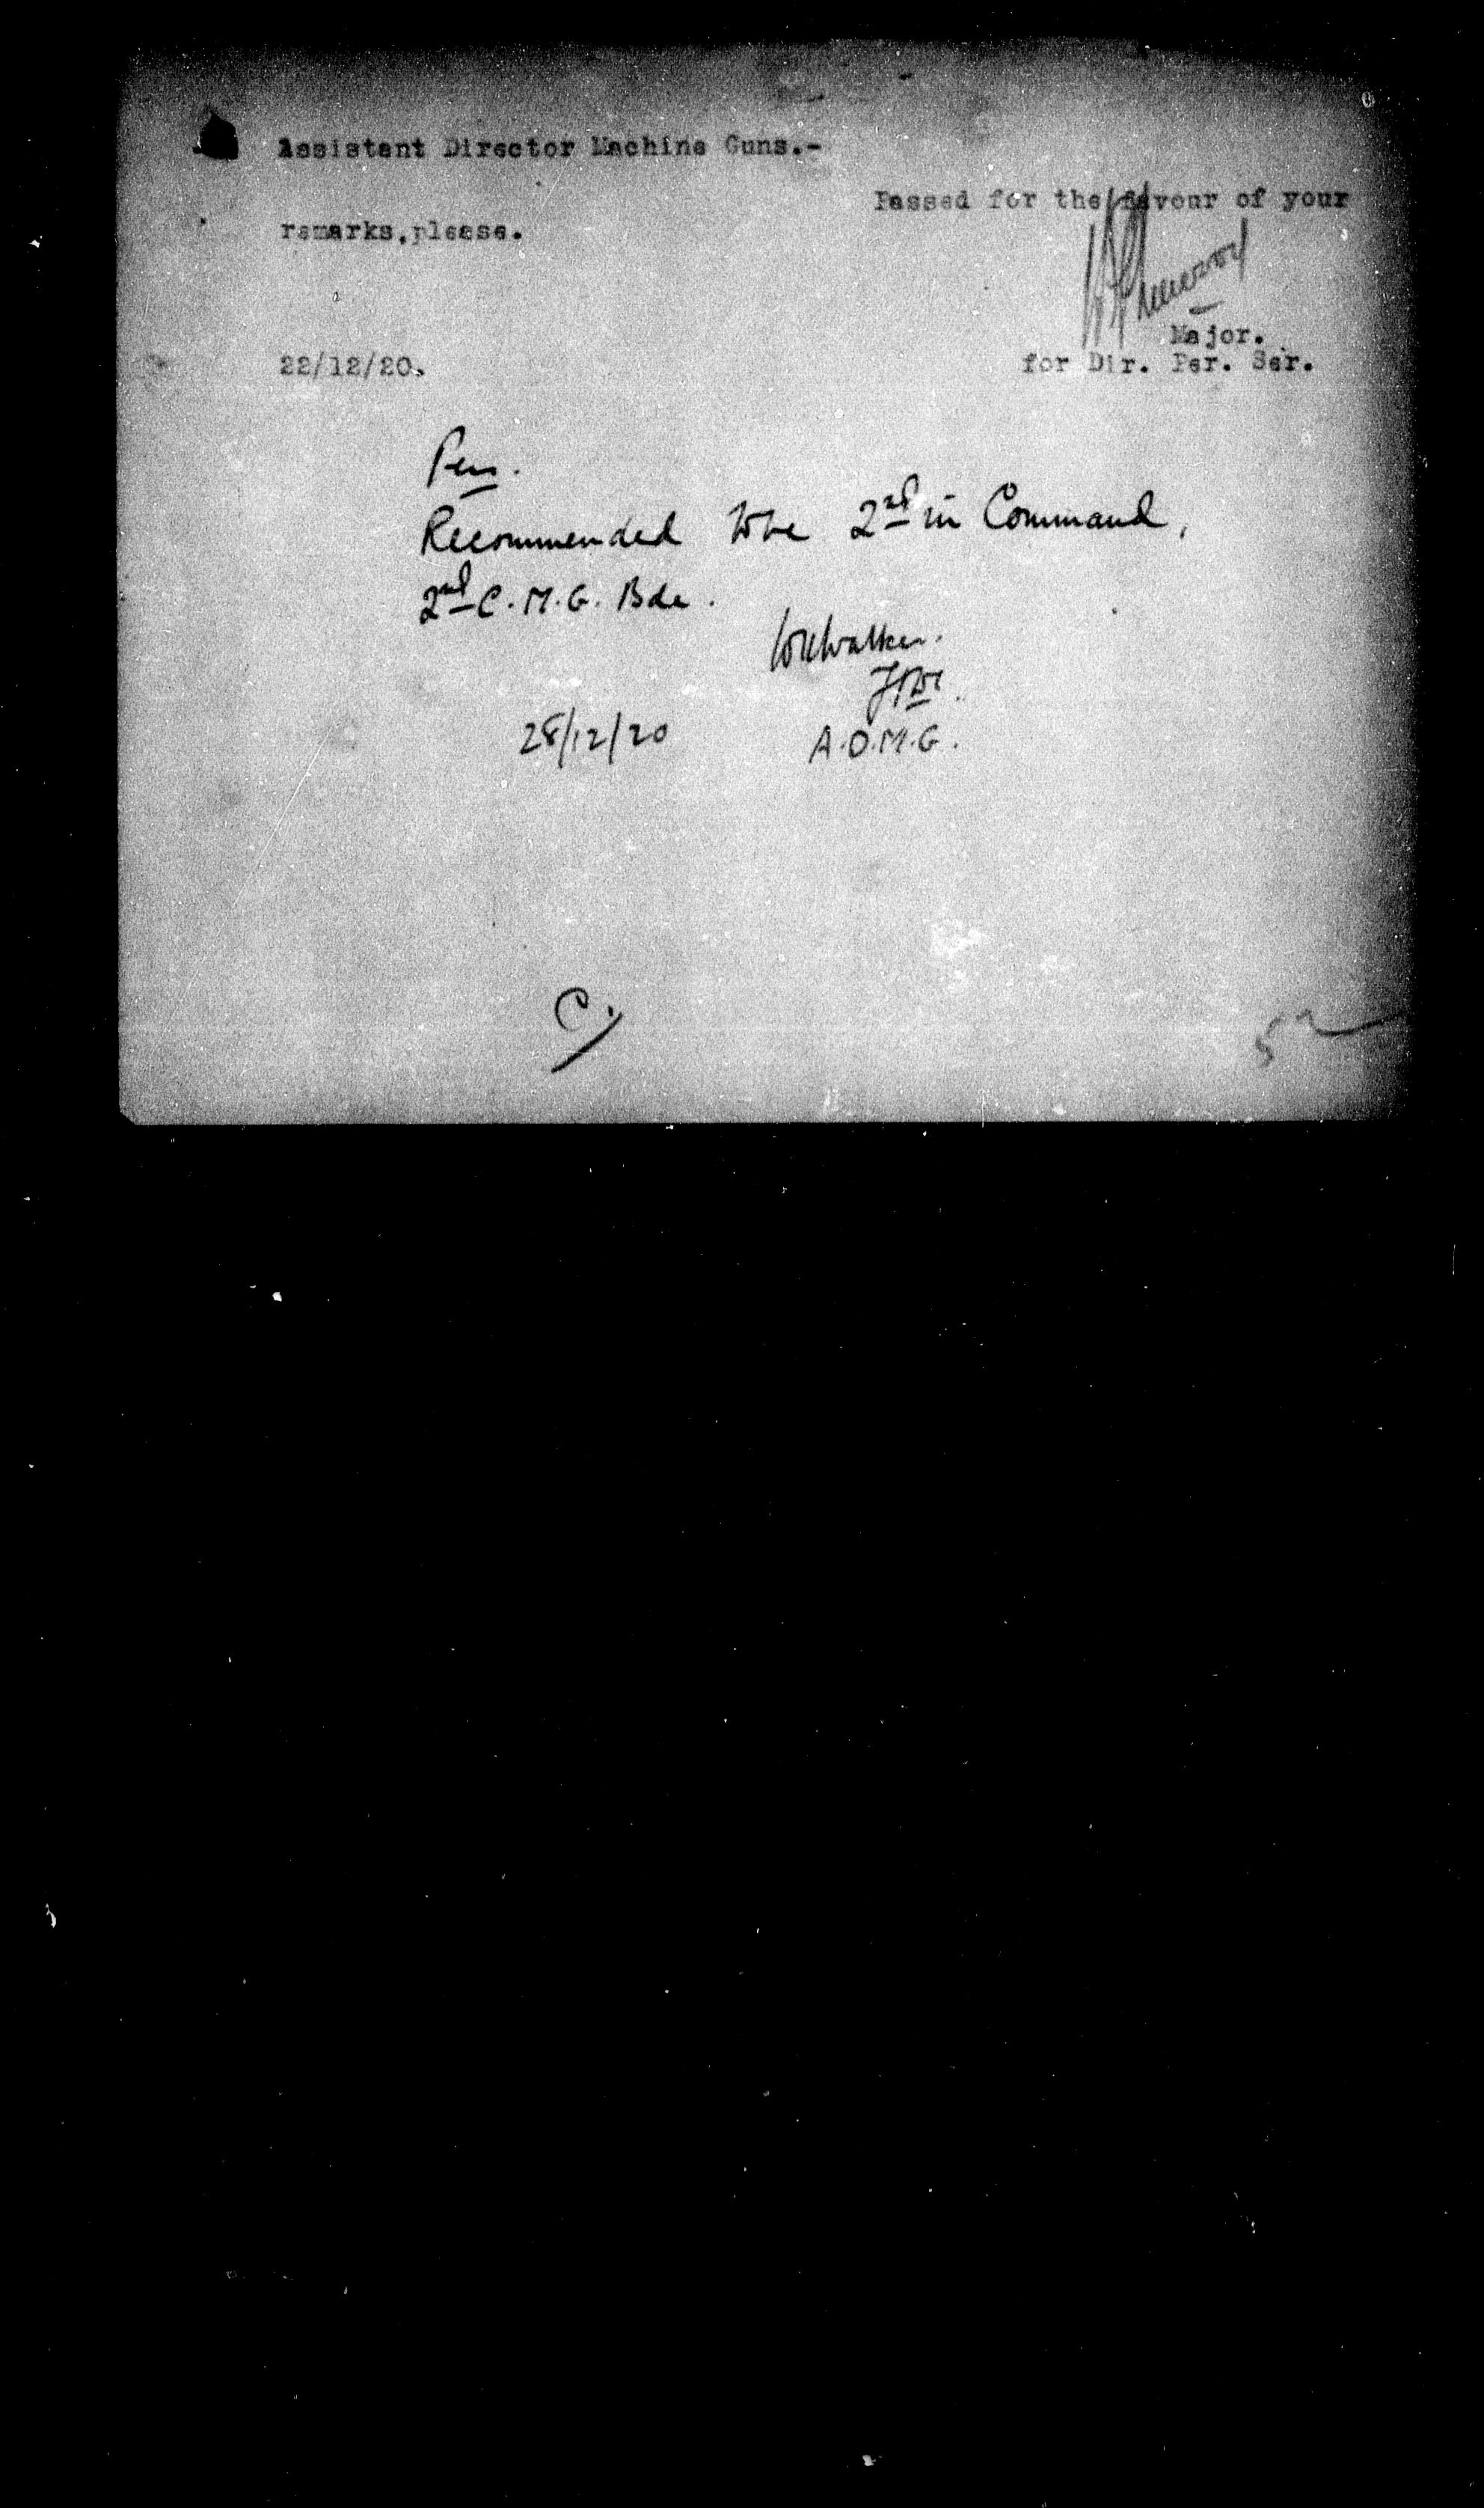 Assistant Director Machine Guns.-
Passed for the favour of your
remarks,please.
Major.
22/12/20.
for Dir. Per. Ser.
Recommended to be 2nd in Command,
2nd C.M.G. Bde.
Walker.
28/12/20
A.D.M.G.
C.
52